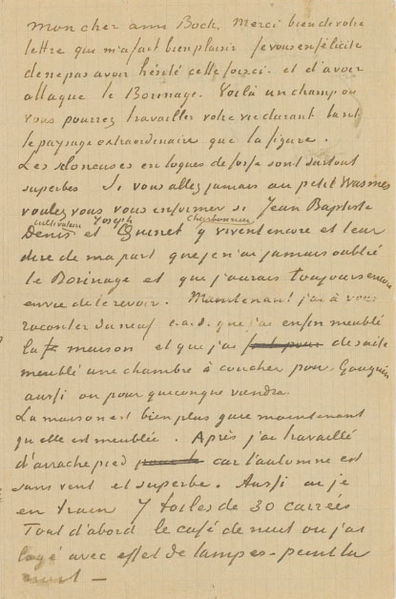 mon cher ami Boch, Merci bien de votre
lettre que m'a fait bien plaisir Je vous en félicite
de ne pas avoir hésité cette fois ci et d'avoir
attaqué le Borinage. Voilà un champ ou
vous pourrez travailler votre vie durant tant
le paysage extraordinaire que la figure.
Les scloneuses en loques de fosse sont surtout
superbes Si vous allez jamais au petit Wasmes
voulez vous vous informer si Jean Baptiste
cultivateur Joseph Charbonnier
Denis et Quinet y vivent encore et leur
dire de ma part que je n'ai jamais oublié
le Borinage et que j'aurais toujours encore
envie de le revoir. Maintenant j'ai à vous
raconter du neuf c.a.d. que j'ai enfin meublé
la maison et que j'ai de suite
meublé une chambre à coucher pour Gauguin
aussi ou pour quiconque viendra.
La maison est bien plus gaie maintenant
qu'elle est meublée. Après j'ai travaillé
d'arrachepied car l'automne est
sans vent et superbe. Aussi ai je
en train 7 toiles de 30 carrées
Tout d'abord le café de nuit ou j'ai
logé avec effet de lampes – peint la
nuit —